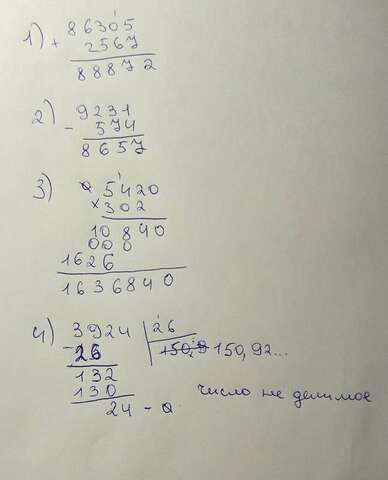 1) + 86305
2567
88872
2) - 9231
574
8657
3) 5420
× 302
10840
000
1626
1636840
4) - 3924 | 26
26 | 150,9 150,92...
132
130
24 - 0
число не делимое